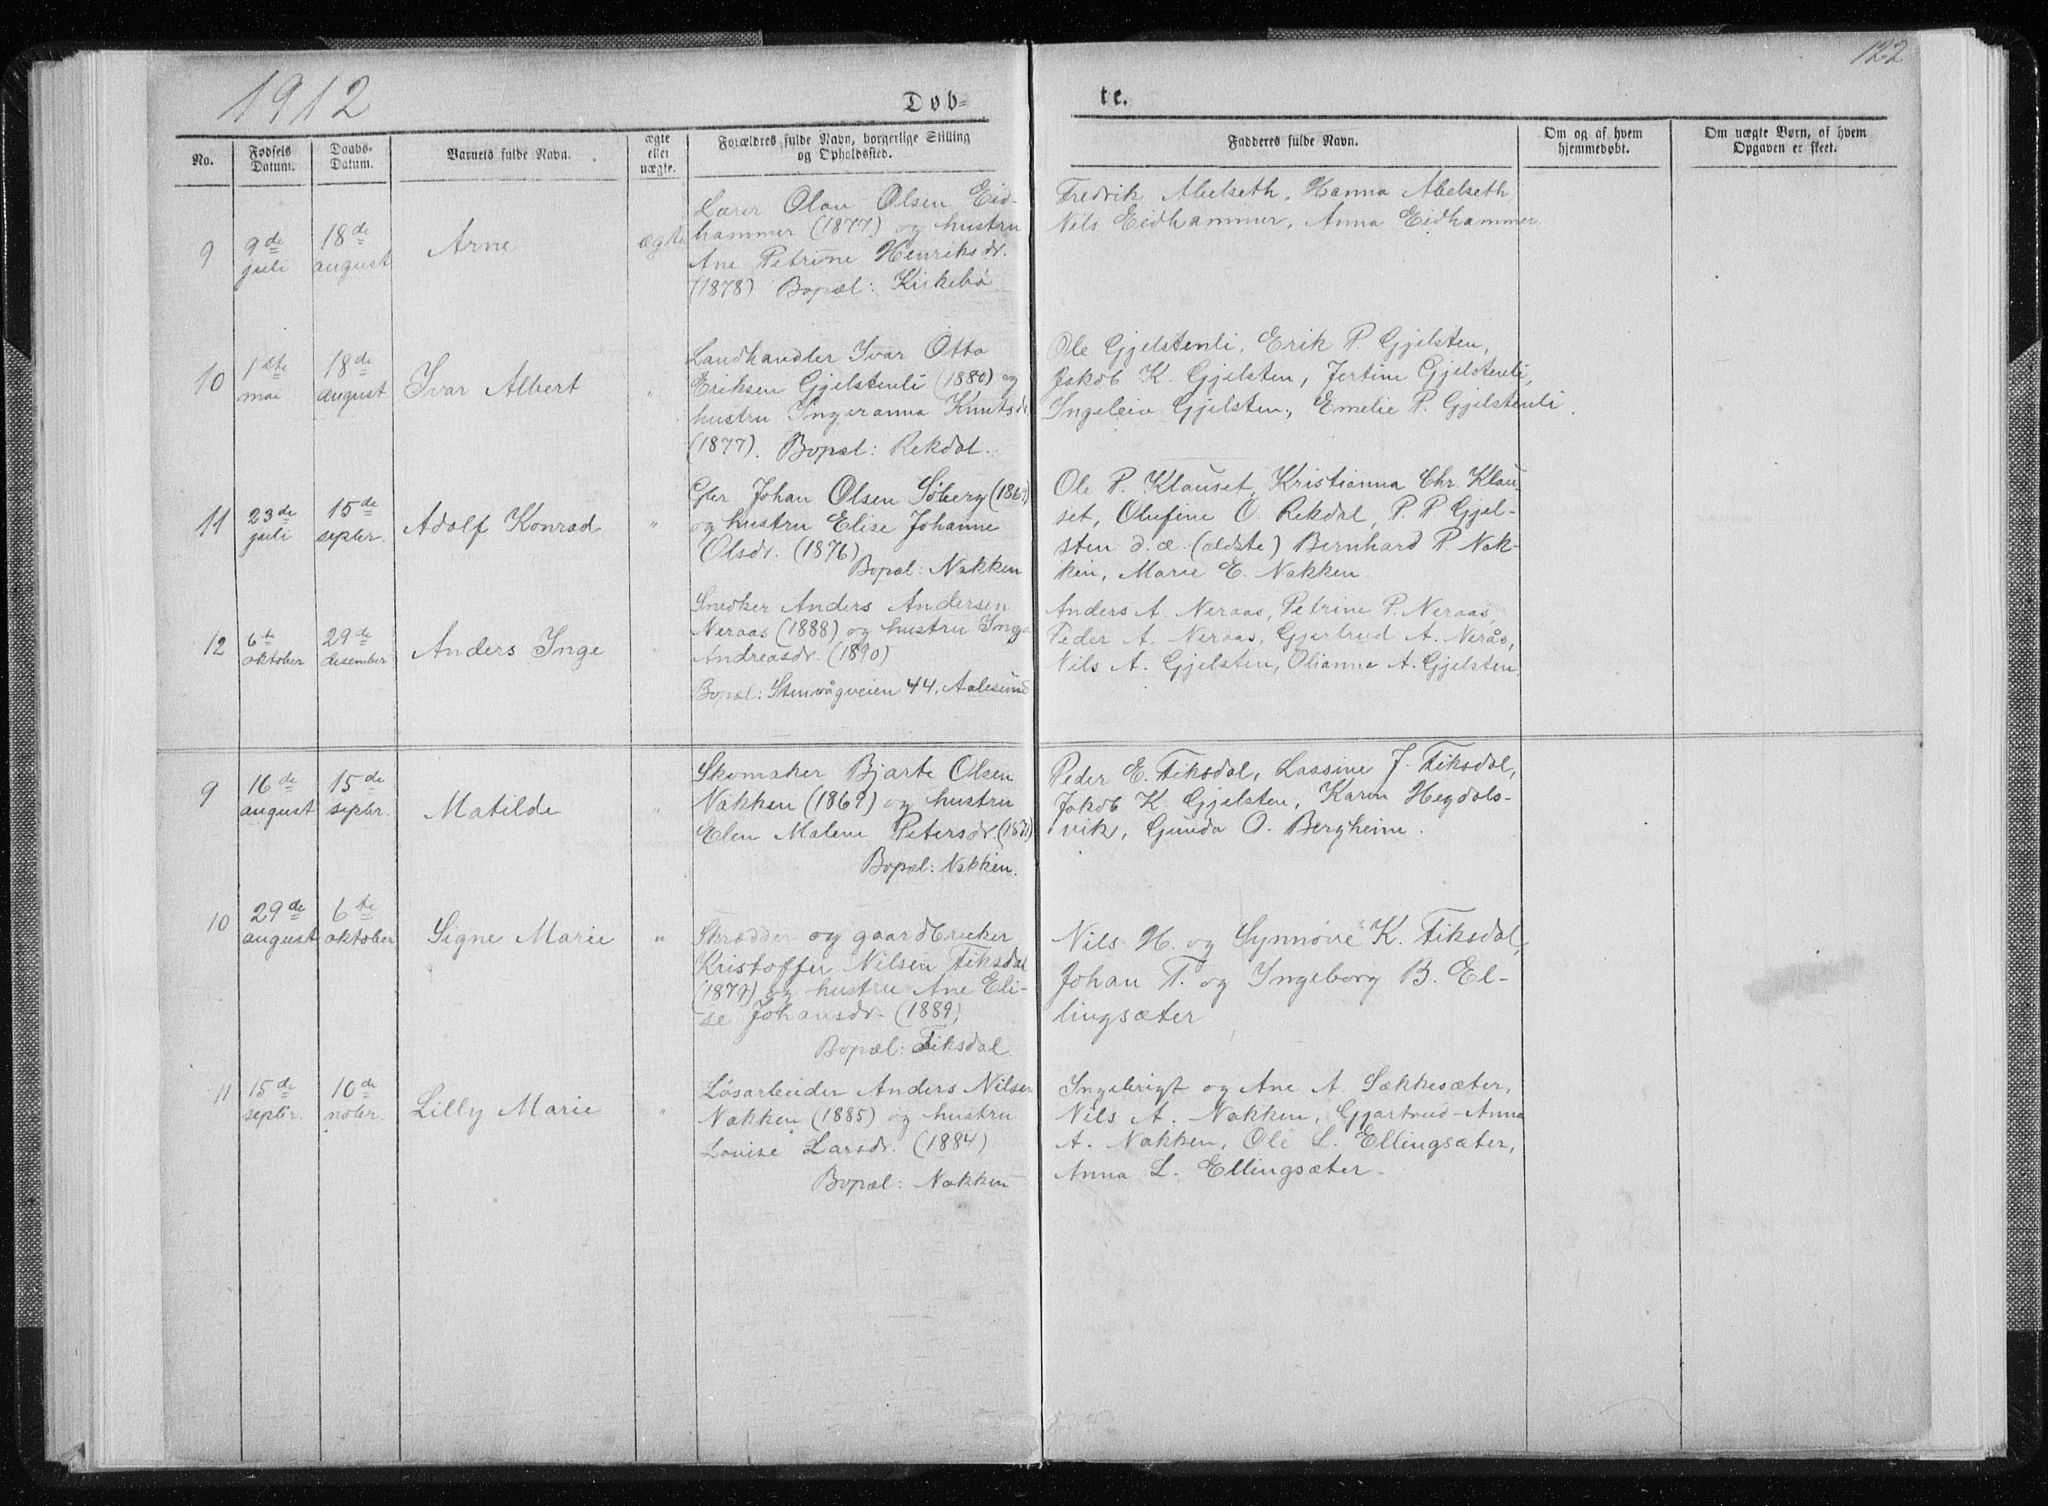 122
1912
Døb-
te.
No.
Fødsels Datum.
Daabs-Datum.
Barnets fulde Navn.
ægte eller uægte.
Forældres fulde Navn, borgerlige Stilling og Opholdssted.
Fadderes fulde Navn.
Om og af hvem hjemmedøbt.
Om uægte Børn, af hvem Opgaven er skeet.
9
9de juli
18de august
Arne
ægte
Lærer Olav Olsen Eid-
hammer (1877) og hustru
Ane Petrine Henriksdr.
(1878) Bopæl: Kirkebø
Fredrik Abelseth, Hanna Abelseth
Nils Eidhammer, Anna Eidhammer
10
1ste mai
18de august
Ivar Albert
"
Landhandler Ivar Otto
Eriksen Gjelstenli (1880) og
hustru Ingeranna Knutsdr
(1877). Bopæl: Rekdal.
Ole Gjelstenli, Erik P. Gjelsten,
Jakob K. Gjelsten, Jertine Gjelstenli,
Ingeleiv Gjelsten, Emelie P. Gjelstenli.
11
23de juli
15de septbr.
Adolf Konrad
"
Johan Olsen Søberg
og hustru Elise Johanne
Olsdr. (1876)
Bopæl: Nakken
Ole P. Klauset, Kristianna Chr. Klau-
set, Olufine O. Rekdal, P. P. Gjel-
sten d.æ. (ældste) Bernhard P. Nak-
ken, Marie E. Nakken.
12
6te oktober
29de desember
Anders Inge
"
Snedker Anders Andersen
Neraas (1888) og hustru Inga
Andreasdr. (1890)
Bopæl: Stenvågveien 44, Aalesund
Anders A. Neraas, Petrine P. Neraas,
Peder A. Neraas, Gjertrud A. Nerås,
Nils A. Gjelsten, Olianna A. Gjelsten,
9
16de august
15de septbr.
Matilde
"
Skomaker Bjarte Olsen
Nakken (1869) og hustru
Elen Malene Petersdr.
Bopæl: Nakken.
Peder E. Fiksdal, Lassine J. Fiksdal,
Jakob K. Gjelsten, Karen Hegdals-
vik, Gunda O. Bergheim.
10
29de august
6te oktober
Signe Marie
"
Skrædder og gaardbruker
Kristoffer Nilsen Fiksdal
(1879) og hustru Ane Eli-
se Johansdr. (1889)
Bopæl: Fiksdal
Nils H. og Synnøve K. Fiksdal,
Johan T. og Ingeborg B. El-
lingsæter
11
15de septbr.
10de nobr.
Lilly Marie
"
Løsarbeider Anders Nilsen
Nakken (1885) og hustru
Louise Larsdr. (1884)
Bopæl: Nakken
Ingebrigt og Ane A. Sækkesæter,
Nils A. Nakken, Gjertrud-Anna
A. Nakken, Ole L. Ellingsæter,
Anna L. Ellingsæter.